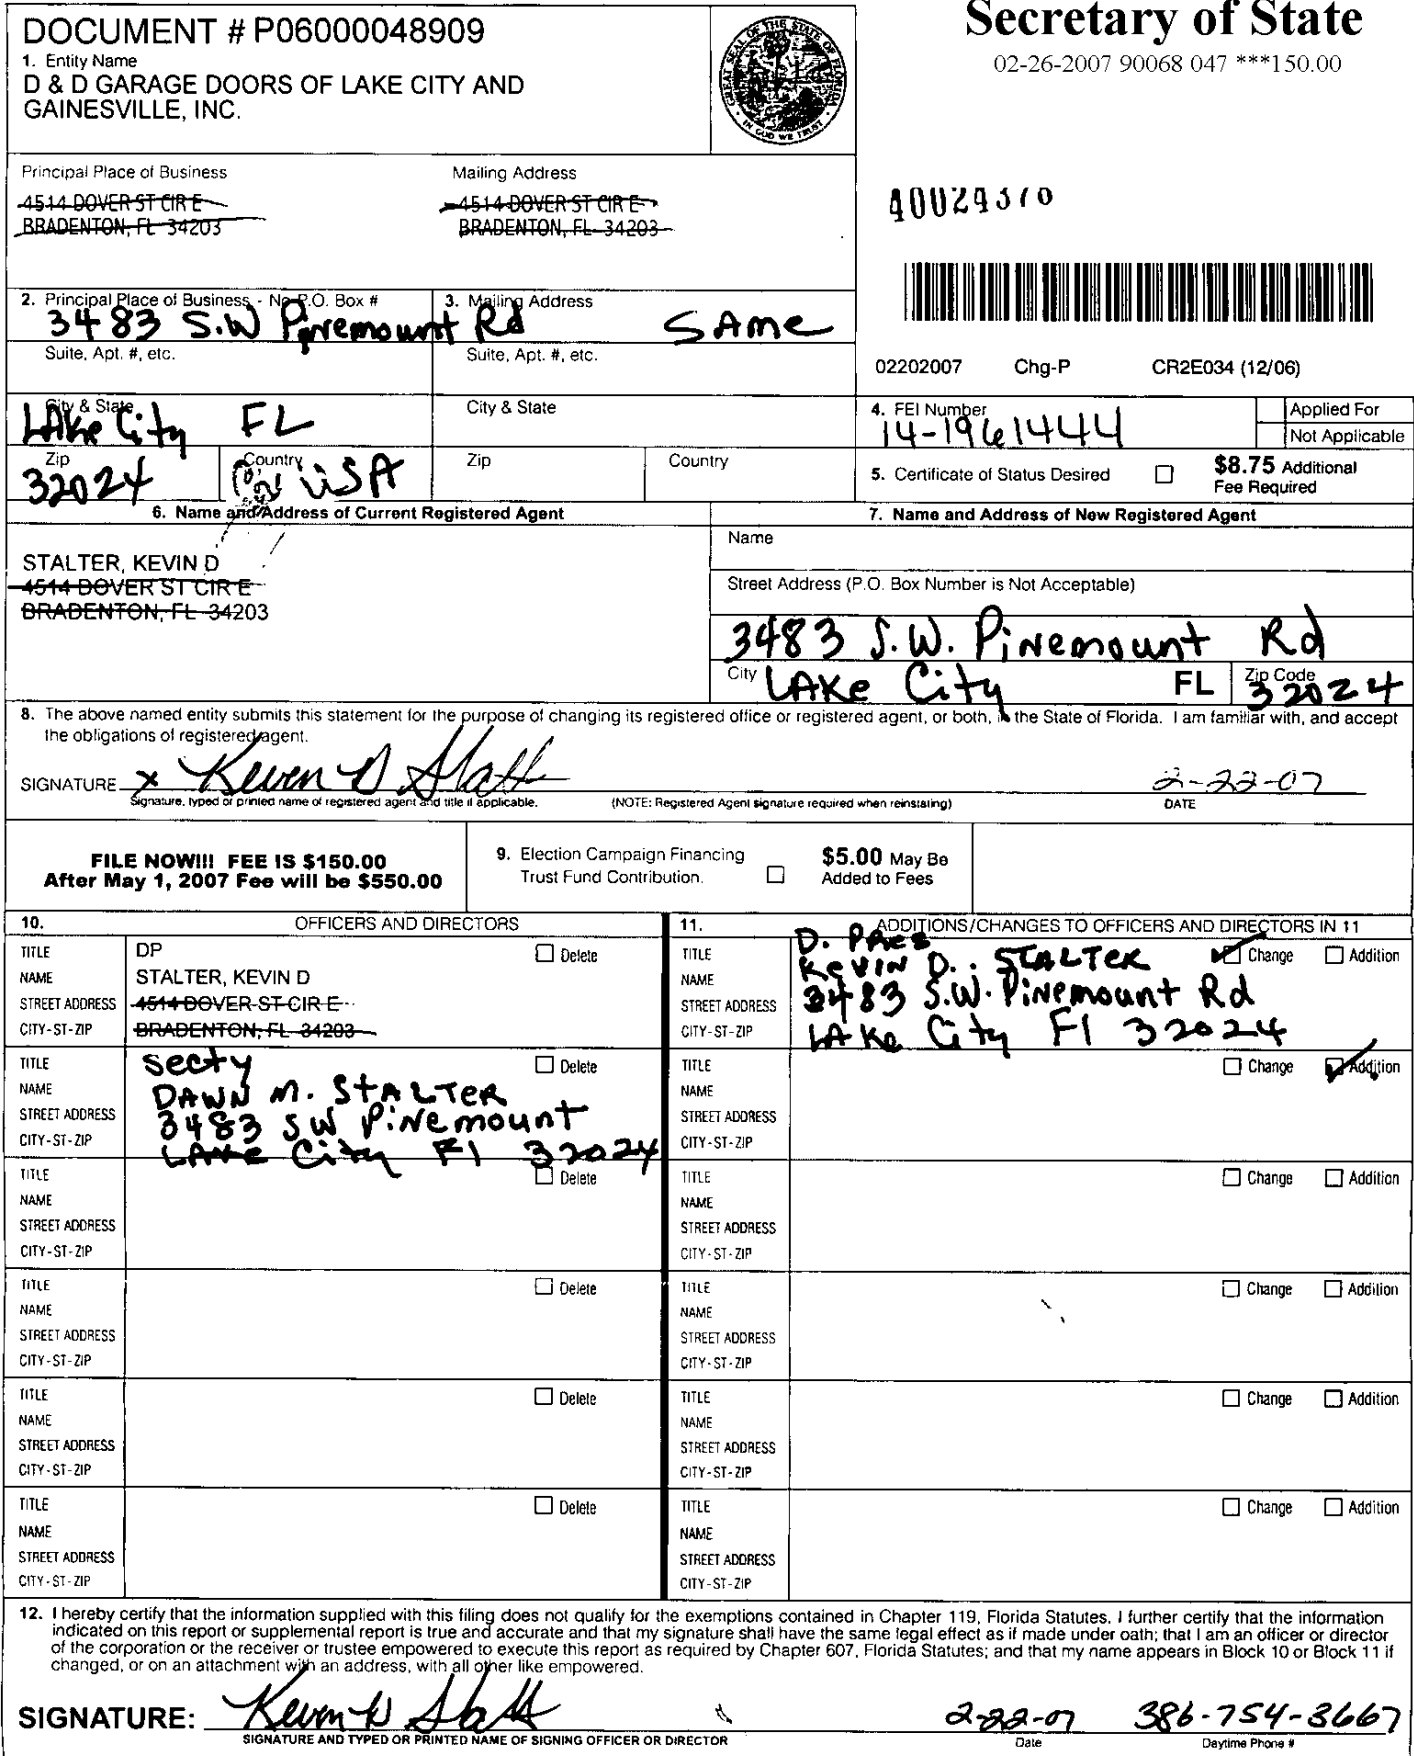 DOCUMENT # P06000048909
1. Entity Name
D & D GARAGE DOORS OF LAKE CITY AND
GAINESVILLE, INC.
GREAT SEAL OF THE STATE OF FLORIDA
IN GOD WE TRUST
Secretary of State
02-26-2007 90068 047 ***150.00
Principal Place of Business
4514 DOVER ST CIR E
BRADENTON, FL 34203
Mailing Address
4514 DOVER ST CIR E
BRADENTON, FL 34203
2. Principal Place of Business - No P.O. Box #
3483 S.W Pinemount Rd
3. Mailing Address
SAme
Suite, Apt. #, etc.
Suite, Apt. #, etc.
02202007 Chg-P CR2E034 (12/06)
City & State
LAke City FL
City & State
4. FEI Number
14-1961444
Applied For
Not Applicable
Zip
32024
Country
USA
Zip
Country
5. Certificate of Status Desired
$8.75 Additional
Fee Required
6. Name and Address of Current Registered Agent
7. Name and Address of New Registered Agent
STALTER, KEVIN D
4514 DOVER ST CIR E
BRADENTON, FL 34203
Name
Street Address (P.O. Box Number is Not Acceptable)
3483 S.W. Pinemount Rd
City LAKe City FL Zip Code 32024
8. The above named entity submits this statement for the purpose of changing its registered office or registered agent, or both, in the State of Florida. I am familiar with, and accept
the obligations of registered agent.
SIGNATURE x Keven D Statt 2-22-07
Signature, typed or printed name of registered agent and title if applicable. (NOTE: Registered Agent signature required when reinstating) DATE
FILE NOW!!! FEE IS $150.00
After May 1, 2007 Fee will be $550.00
9. Election Campaign Financing
Trust Fund Contribution.
$5.00 May Be
Added to Fees
10. OFFICERS AND DIRECTORS
TITLE DP Delete
NAME STALTER, KEVIN D
STREET ADDRESS 4514 DOVER ST CIR E
CITY-ST-ZIP BRADENTON, FL 34203
TITLE secty Delete
NAME DAWN M. STALTER
STREET ADDRESS 3483 SW PiNemount
CITY-ST-ZIP LAKe City Fl 32024
TITLE Delete
NAME
STREET ADDRESS
CITY-ST-ZIP
TITLE Delete
NAME
STREET ADDRESS
CITY-ST-ZIP
TITLE Delete
NAME
STREET ADDRESS
CITY-ST-ZIP
TITLE Delete
NAME
STREET ADDRESS
CITY-ST-ZIP
11. ADDITIONS/CHANGES TO OFFICERS AND DIRECTORS IN 11
TITLE D. PRes Change Addition
NAME KeVIN D. STALTER
STREET ADDRESS 3483 S.W. Pinemount Rd
CITY-ST-ZIP LAKe City Fl 32024
TITLE Change Addition
NAME
STREET ADDRESS
CITY-ST-ZIP
TITLE Change Addition
NAME
STREET ADDRESS
CITY-ST-ZIP
TITLE Change Addition
NAME
STREET ADDRESS
CITY-ST-ZIP
TITLE Change Addition
NAME
STREET ADDRESS
CITY-ST-ZIP
TITLE Change Addition
NAME
STREET ADDRESS
CITY-ST-ZIP
12. I hereby certify that the information supplied with this filing does not qualify for the exemptions contained in Chapter 119, Florida Statutes. I further certify that the information
indicated on this report or supplemental report is true and accurate and that my signature shall have the same legal effect as if made under oath; that I am an officer or director
of the corporation or the receiver or trustee empowered to execute this report as required by Chapter 607, Florida Statutes; and that my name appears in Block 10 or Block 11 if
changed, or on an attachment with an address, with all other like empowered.
SIGNATURE: Kevin D Statt 2-22-07 386-754-3667
SIGNATURE AND TYPED OR PRINTED NAME OF SIGNING OFFICER OR DIRECTOR Date Daytime Phone #